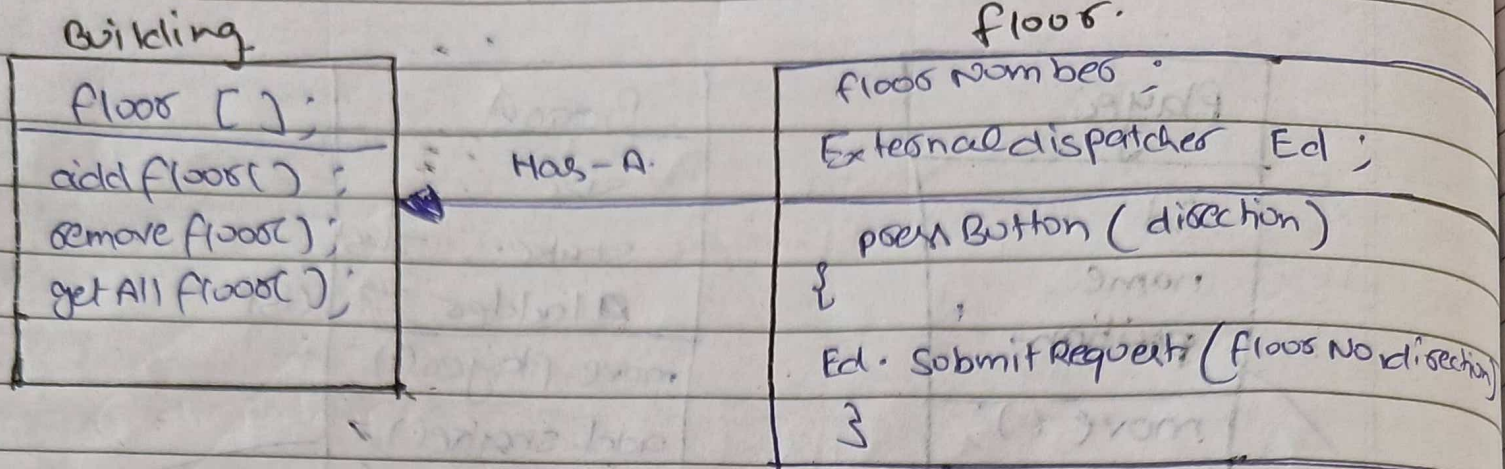 Building
floor [ ];
add floor() ;
remove floor();
getAll floor();
Has-A.
floor.
floor Number ;
External dispatcher Ed ;
press Button ( direction)
{
Ed. Submit Request (floor No, direction)
}